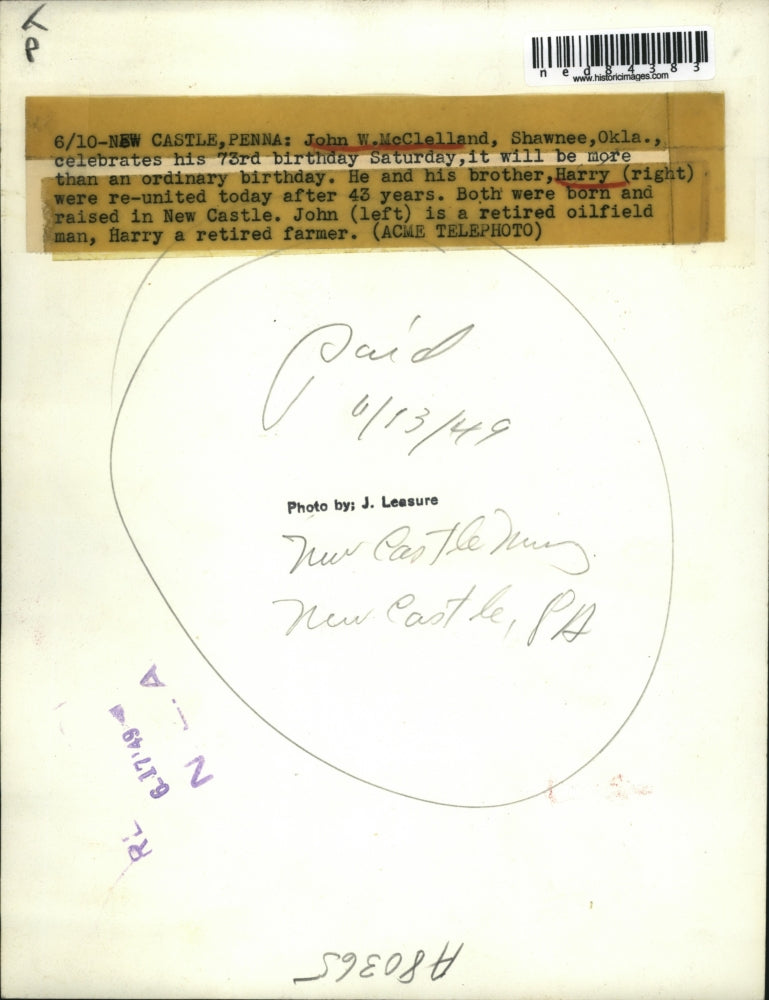 L
P
ned84383
www.historicimages.com
6/10-NEW CASTLE,PENNA: John W.McClelland, Shawnee,Okla.,
celebrates his 73rd birthday Saturday,it will be more
than an ordinary birthday. He and his brother,Harry (right)
were re-united today after 43 years. Both were born and
raised in New Castle. John (left) is a retired oilfield
man, Harry a retired farmer. (ACME TELEPHOTO)
Paid
6/13/49
Photo by; J. Leasure
New Castle News
New Castle, PA
N A
6-17'49
A80365